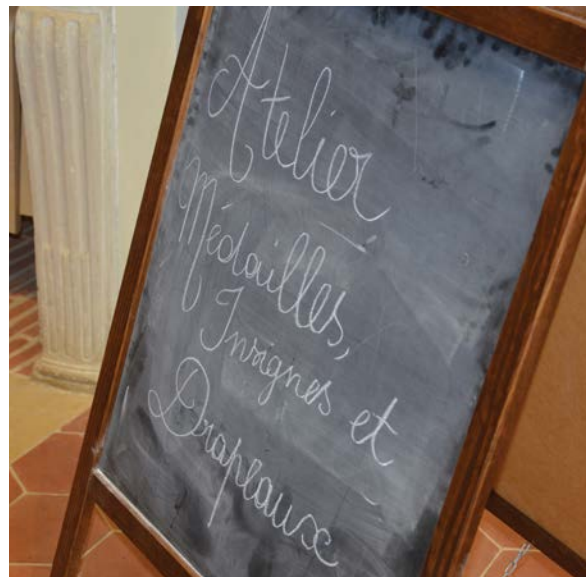 Atelier
Médailles,
Insignes et
Drapeaux